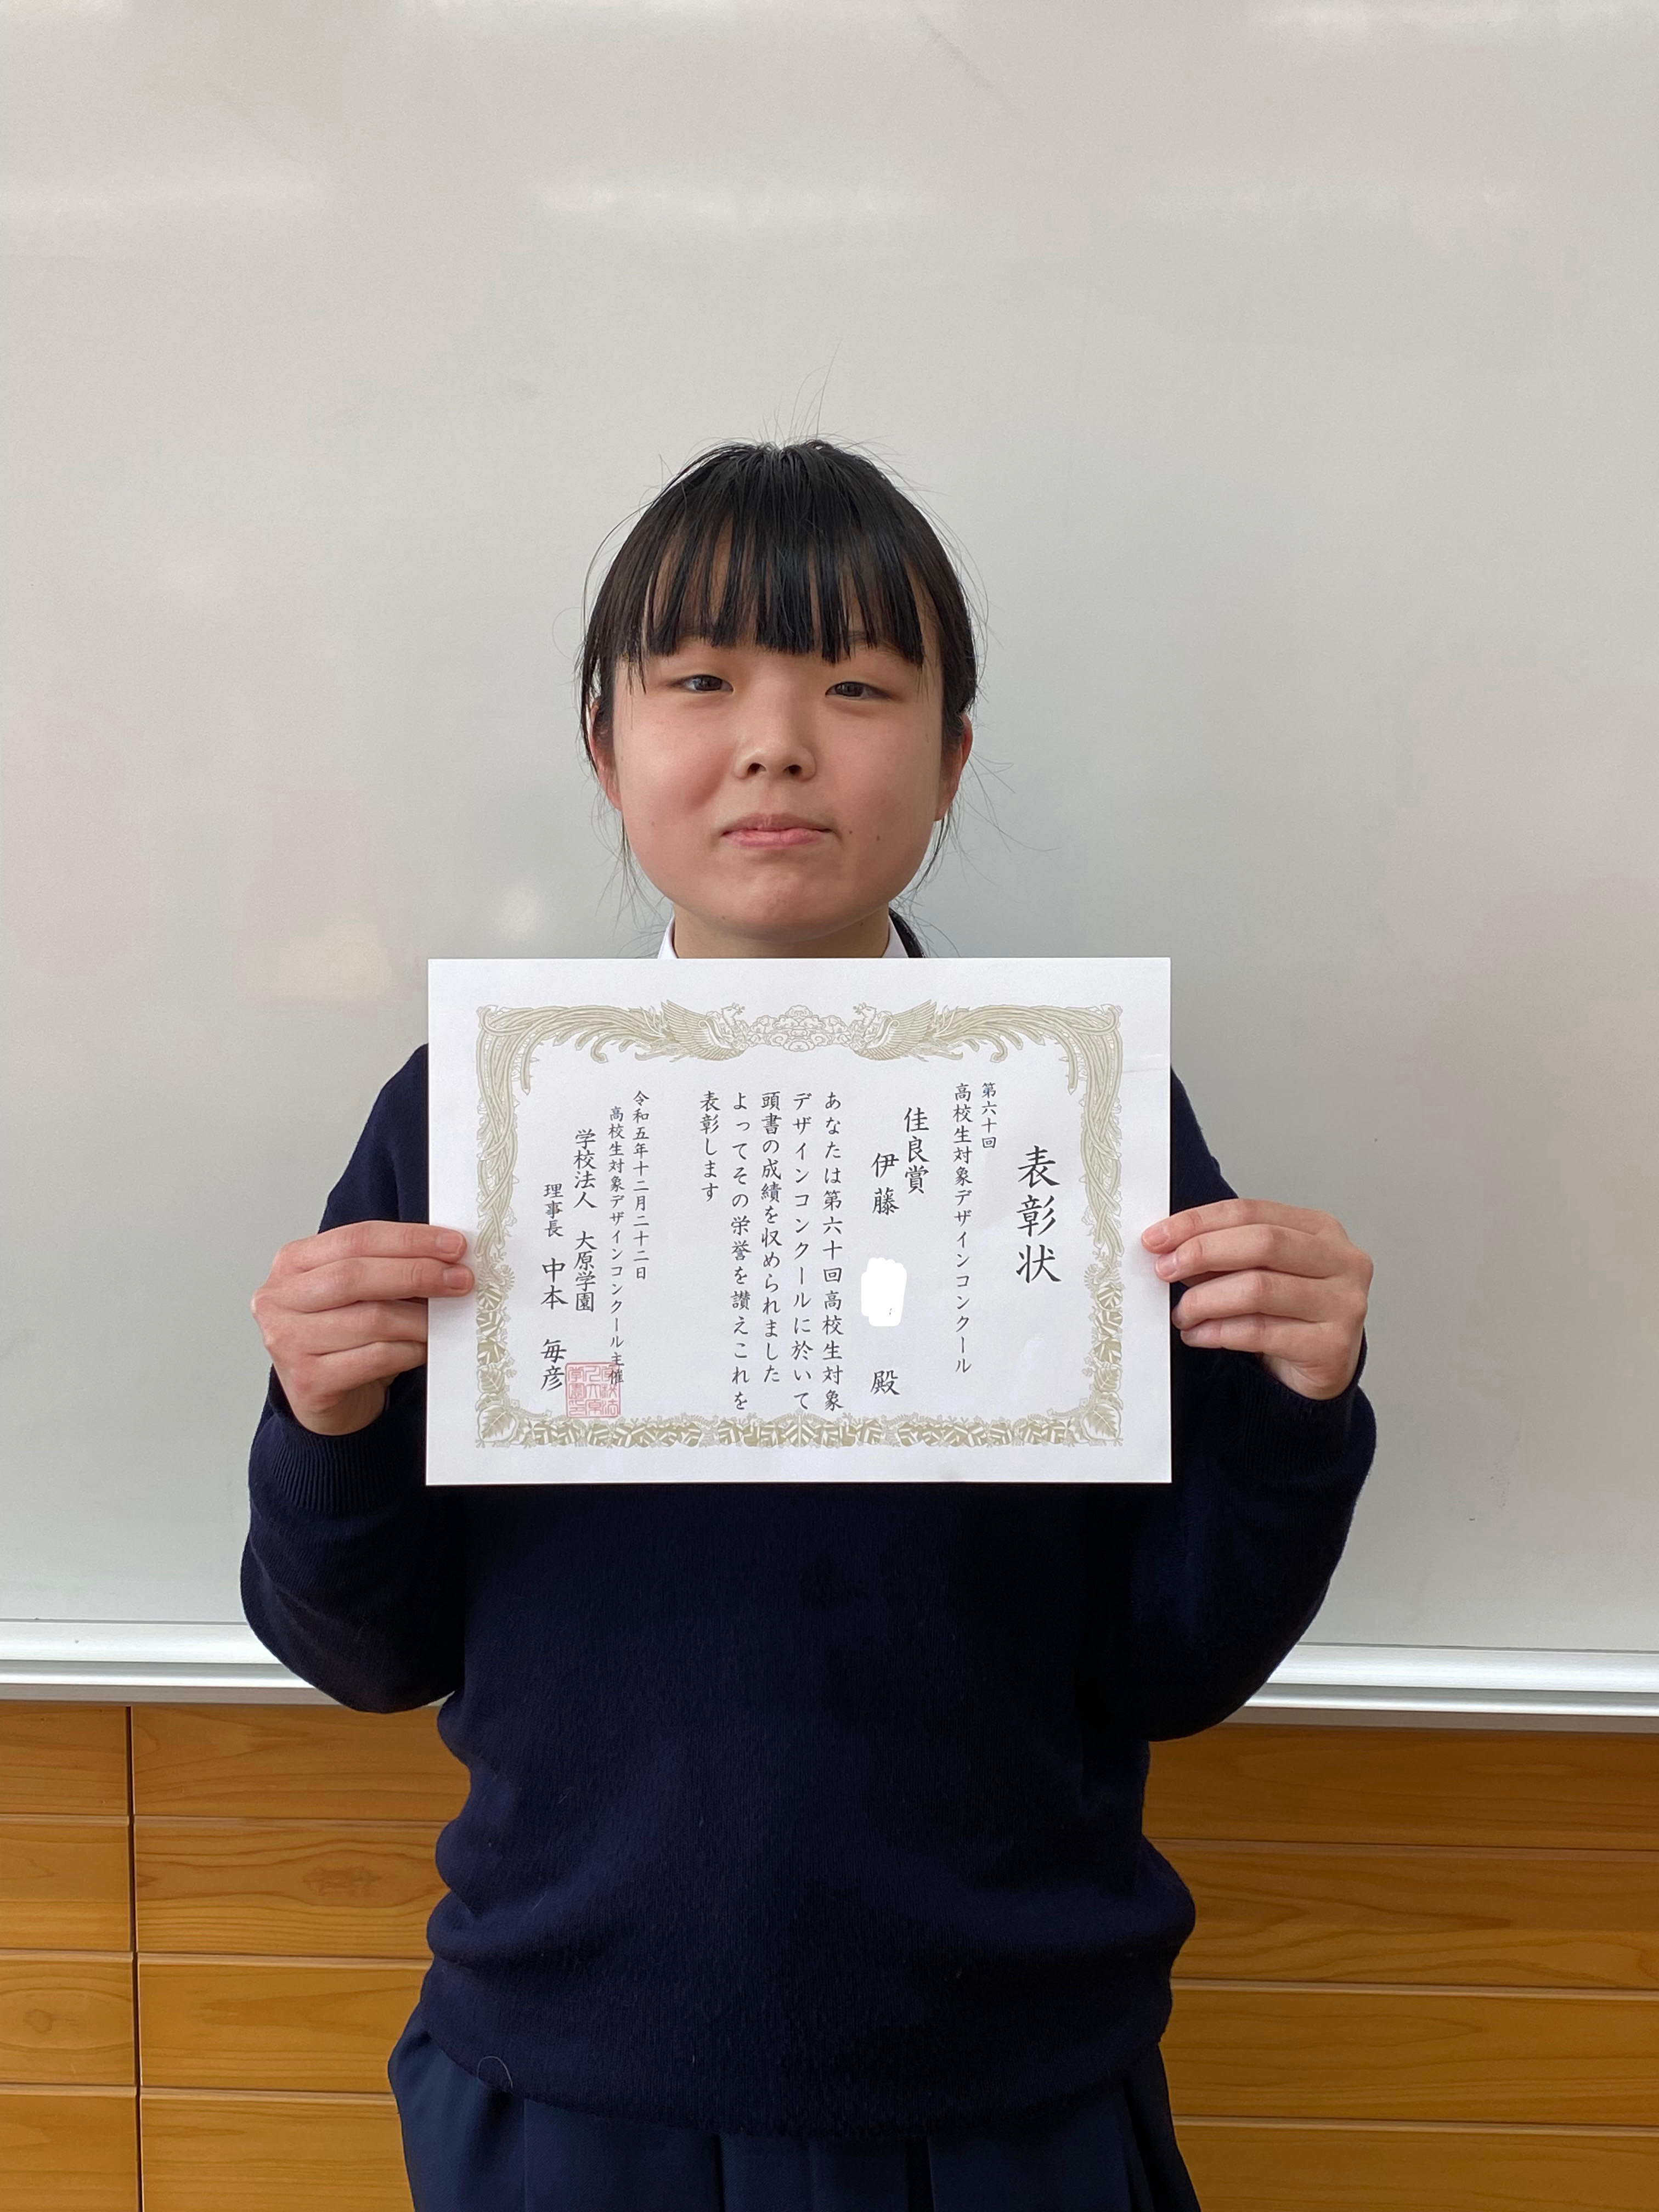 表彰状
第六十回
高校生対象デザインコンクール
佳良賞
伊藤 殿
あなたは第六十回高校生対象
デザインコンクールに於いて
頭書の成績を収められました
よってその栄誉を讃えこれを
表彰します
令和五年十二月二十二日
高校生対象デザインコンクール主催
学校法人 大原学園
理事長 中本 毎彦